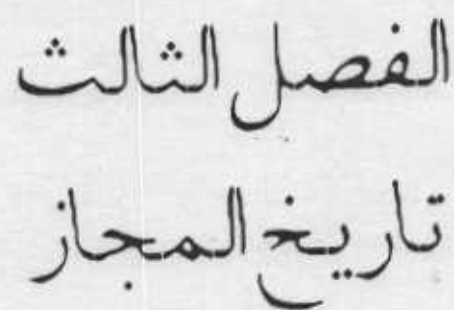 الفصل الثالث
تاريخ المجاز